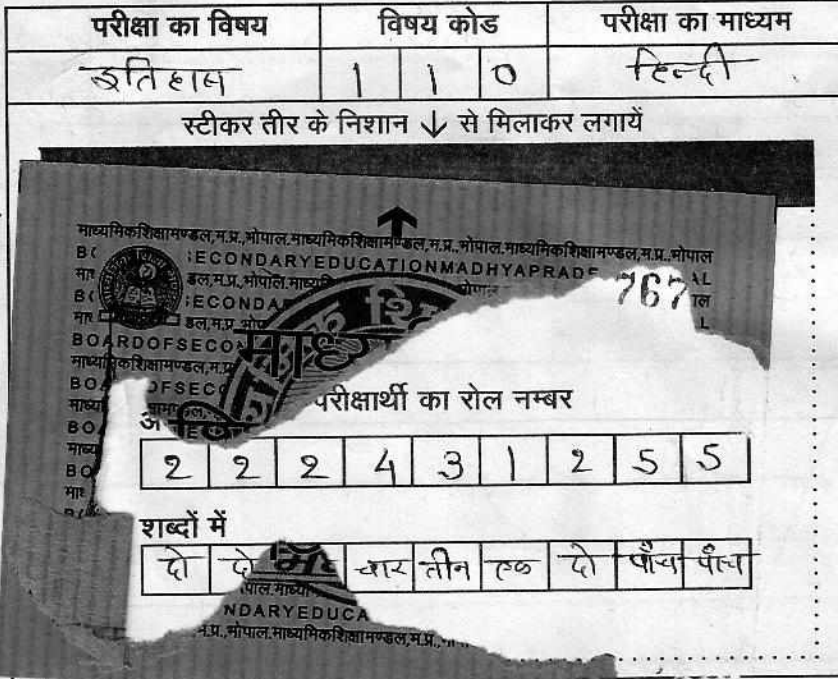 परीक्षा का विषय विषय कोड परीक्षा का माध्यम
इतिहास 1 1 0 हिन्दी
स्टीकर तीर के निशान ↓ से मिलाकर लगायें
माध्यमिकशिक्षामण्डल,म.प्र.,भोपाल.माध्यमिकशिक्षामण्डल,म.प्र.,भोपाल.माध्यमिकशिक्षामण्डल,म.प्र.,भोपाल
ECONDARYEDUCATIONMADHYAPRADE
767
BOARDOFSECON
माध्यमिकशिक्षामण्डल,म.प्र
परीक्षार्थी का रोल नम्बर
2 2 2 4 3 1 2 5 5
शब्दों में
दो दो चार तीन एक दो पाँच पाँच
NDARYEDUCA
म.प्र.,भोपाल.माध्यमिकशिक्षामण्डल,म.प्र.,